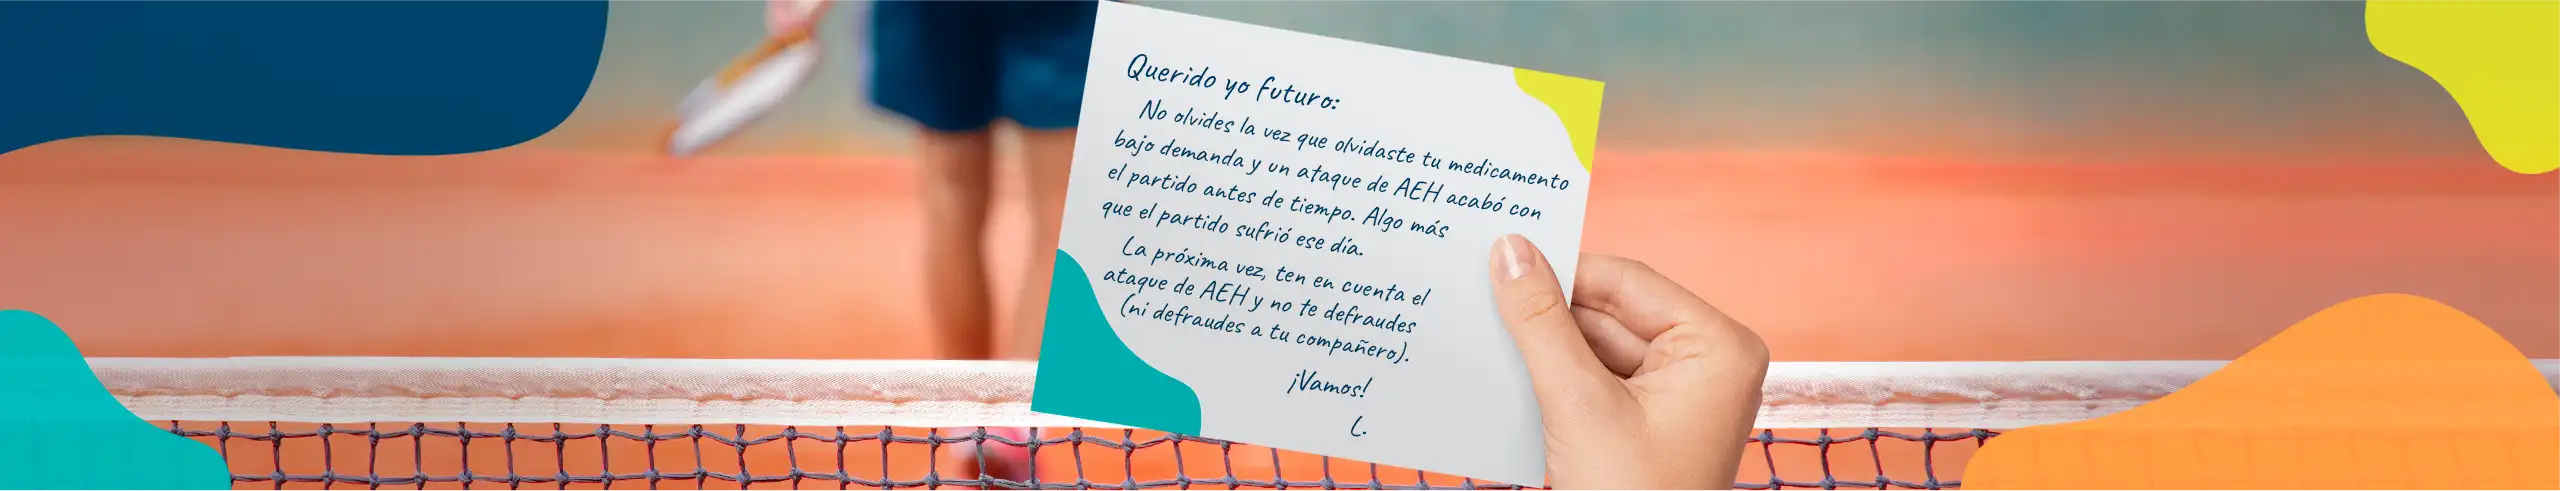 Querido yo futuro:
No olvides la vez que olvidaste tu medicamento
bajo demanda y un ataque de AEH acabó con
el partido antes de tiempo. Algo más
que el partido sufrió ese día.
La próxima vez, ten en cuenta el
ataque de AEH y no te defraudes
(ni defraudes a tu compañero).
¡Vamos!
L.